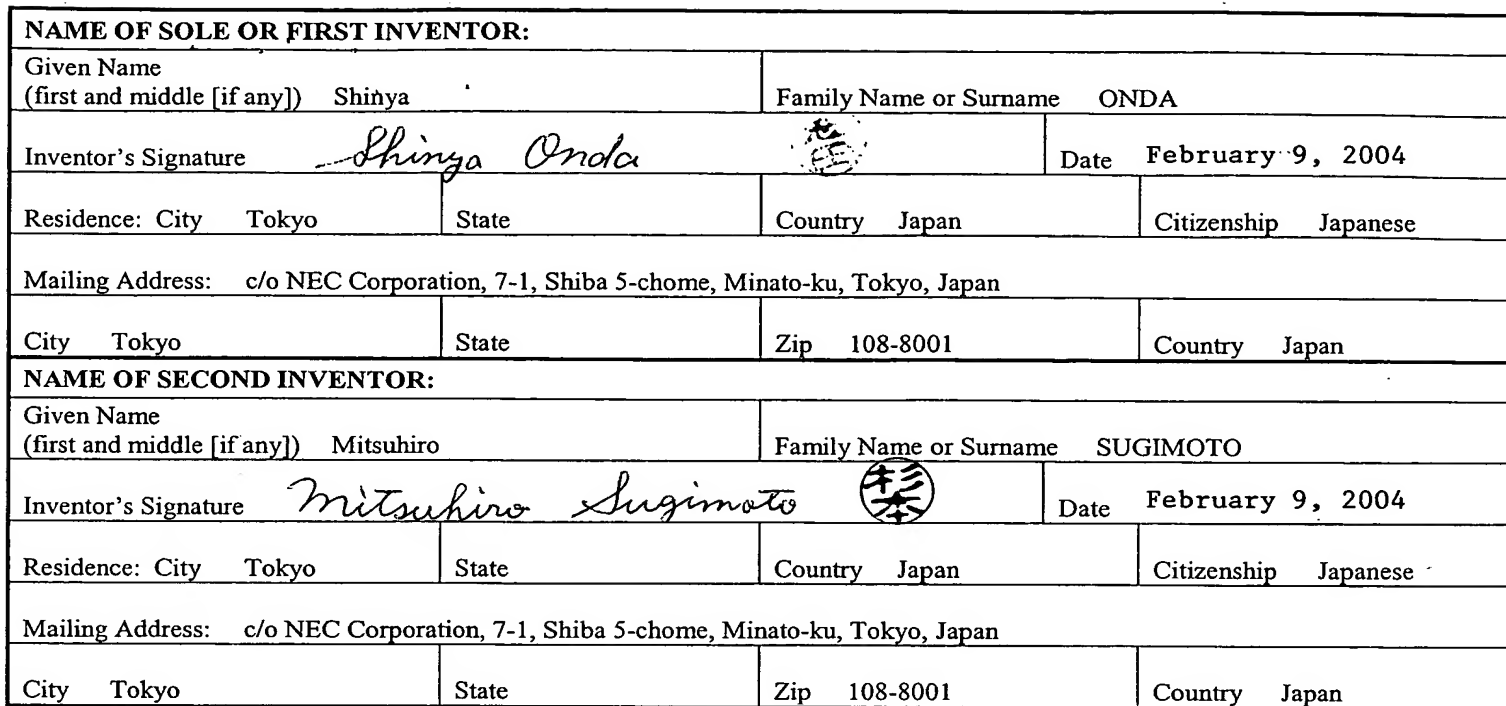 NAME OF SOLE OR FIRST INVENTOR:
Given Name
(first and middle [if any]) Shinya
Family Name or Surname ONDA
Inventor's Signature Shinya Onda
Date February 9, 2004
Residence: City Tokyo State Country Japan Citizenship Japanese
Mailing Address: c/o NEC Corporation, 7-1, Shiba 5-chome, Minato-ku, Tokyo, Japan
City Tokyo State Zip 108-8001 Country Japan
NAME OF SECOND INVENTOR:
Given Name
(first and middle [if any]) Mitsuhiro
Family Name or Surname SUGIMOTO
Inventor's Signature Mitsuhiro Sugimoto 杉本
Date February 9, 2004
Residence: City Tokyo State Country Japan Citizenship Japanese
Mailing Address: c/o NEC Corporation, 7-1, Shiba 5-chome, Minato-ku, Tokyo, Japan
City Tokyo State Zip 108-8001 Country Japan